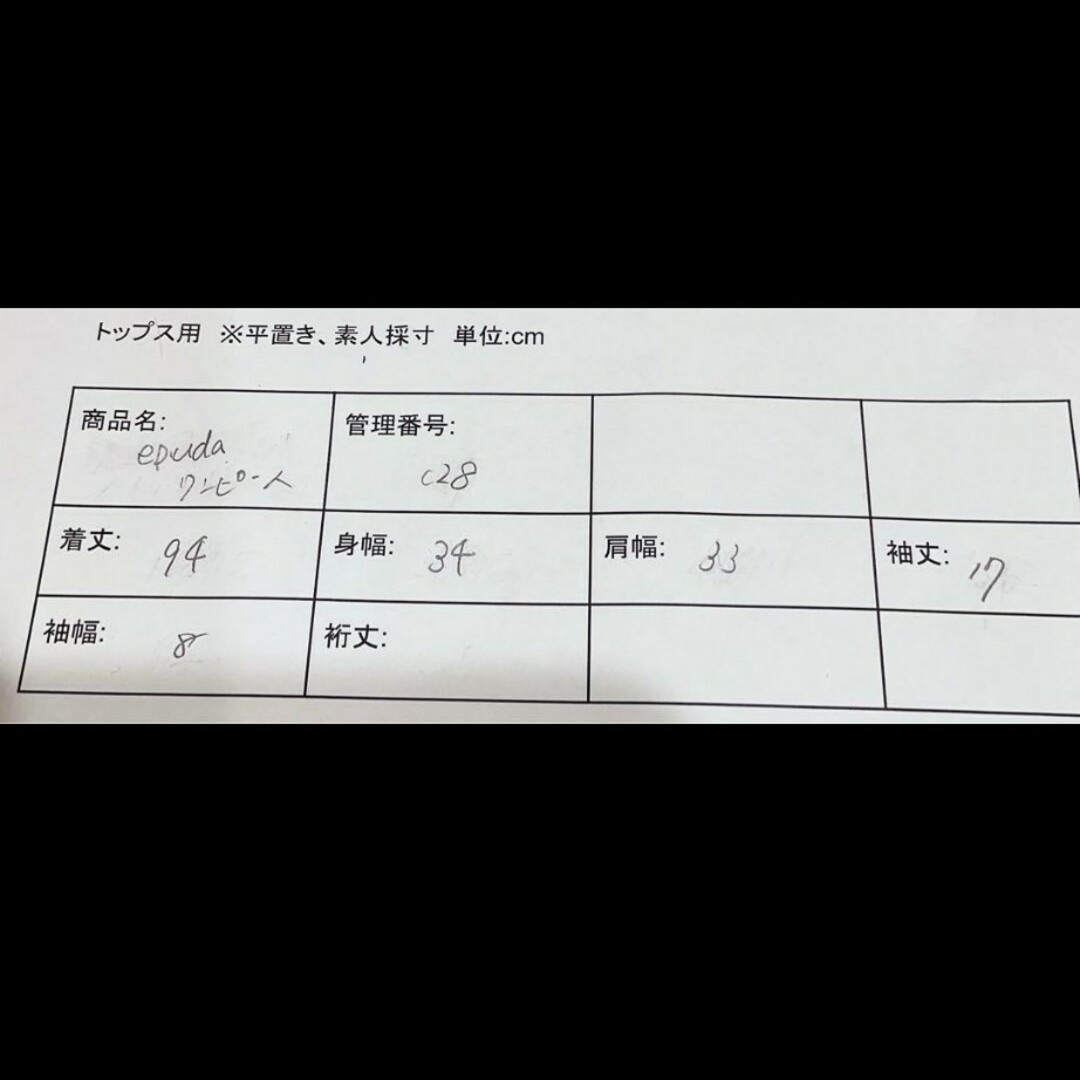 トップス用 ※平置き、素人採寸 単位:cm
商品名:
epuda
ワンピース
管理番号:
c28
着丈: 94
身幅: 34
肩幅: 33
袖丈: 17
袖幅: 8
裄丈: